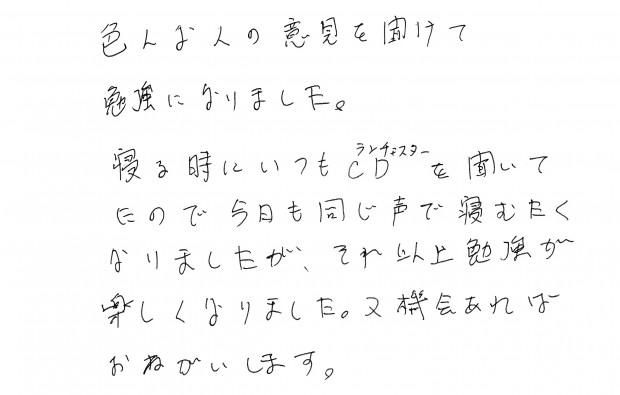 色んな人の意見を聞けて
勉強になりました。
ランチェスター
寝る時にいつもCDを聞いて
たので今日も同じ声で寝むたく
なりましたが、それ以上勉強が
楽しくなりました。又機会あれば
おねがいします。